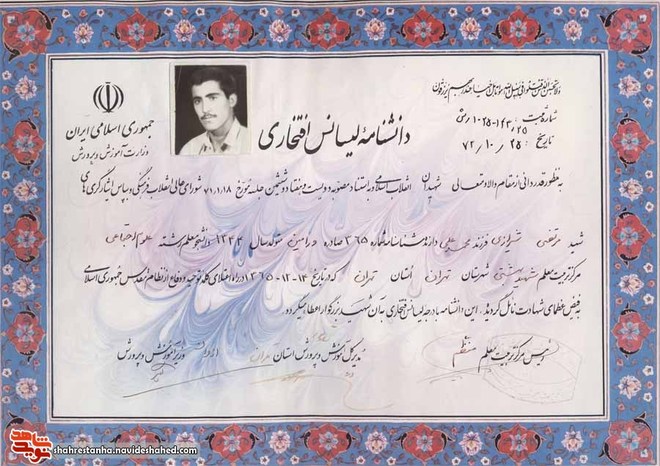 ولا تحسبن الذین قتلوا فی سبیل الله امواتا بل احیاء عند ربهم یرزقون
جمهوری اسلامی ایران
وزارت آموزش و پرورش
دانشنامهٔ لیسانس افتخاری
شماره ثبت: ۱۰۲۵-۱۲۳/۲۵
تاریخ: ۷۲/۱۰/۲۵
به منظور قدردانی از مقام والا و متعالی شهیدان انقلاب اسلامی و به استناد مصوبه دویست و هفتاد و ششمین جلسه مورخ ۷۱/۱/۱۸ شورای عالی انقلاب فرهنگی و بپاس ایثارگری های
شهید مرتضی شیرازی فرزند محمدعلی دارنده شناسنامه شماره ۳۶۵ صادره ورامین متولد سال ۱۳۴۴ دانشجو معلم رشته علوم اجتماعی
مرکز تربیت معلم شهید بهشتی شهرستان تهران استان تهران که در تاریخ ۱۳۶۵-۱۲-۱۴ در راه اعتلای کلمه توحید و دفاع از نظام مقدس جمهوری اسلامی
به فیض عظمای شهادت نائل گردید. این دانشنامه با درجه لیسانس افتخاری به آن شهید بزرگوار اعطا میگردد.
رئیس مرکز تربیت معلم منتظم
مدیر کل آموزش و پرورش استان تهران
وزیر آموزش و پرورش
نوید شاهد
shahrestanha.navideshahed.com